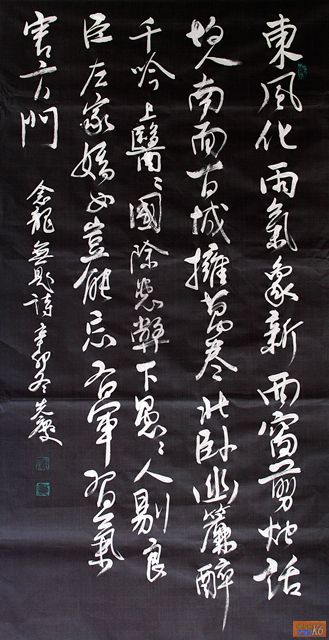 東風化雨氣象新西窗剪燭話
故人南面百城擁萬卷北臥幽簾醉
千吟上醫醫國除怠弊下愚愚人剔良
臣左家嬌女豈能忘右軍習氣
害六門
念龍無題詩辛卯冬